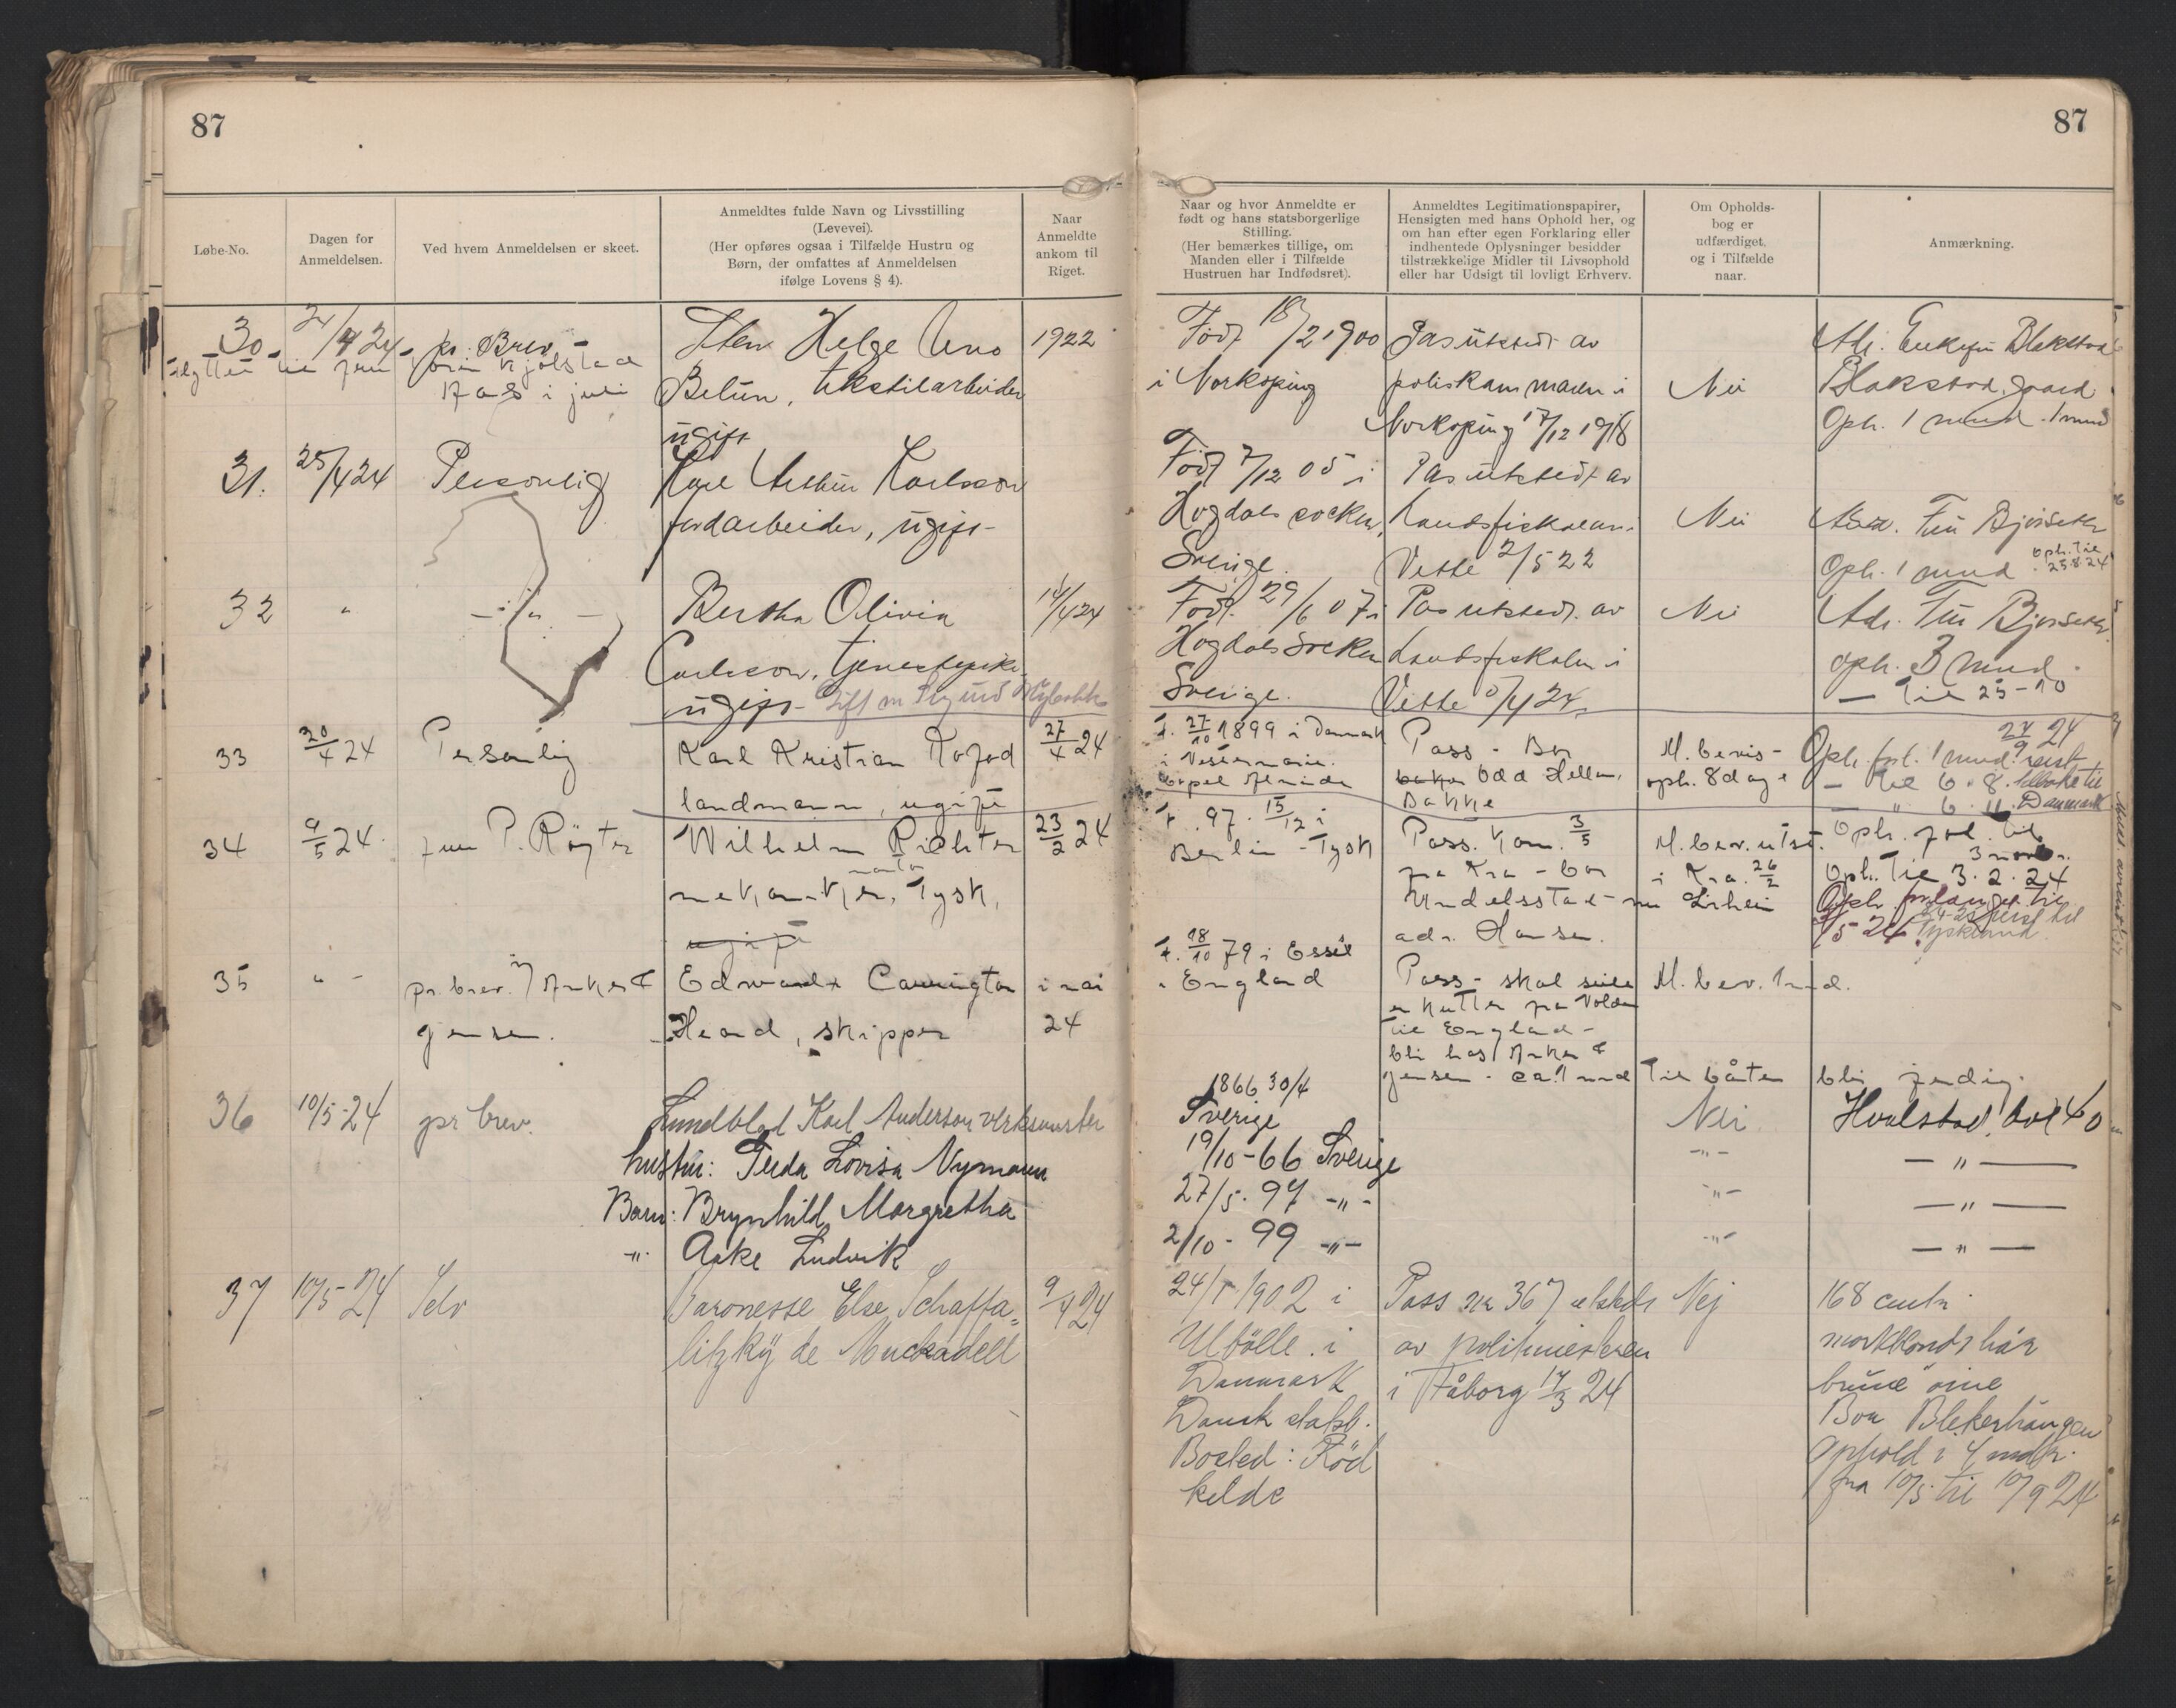 87
87
Løbe-No.
Dagen for
Anmeldelsen.
Ved hvem Anmeldelsen er skeet.
Anmeldtes fulde Navn og Livsstilling
(Levevei).
(Her opføres ogsaa i Tilfælde Hustru og
Børn, der omfattes af Anmeldelsen
ifølge Lovens § 4).
Naar
Anmeldte
ankom til
Riget.
Naar og hvor Anmeldte er
født og hans statsborgerlige
Stilling.
(Her bemærkes tillige, om
Manden eller i Tilfælde
Hustruen har Indfødsret).
Anmeldtes Legitimationspapirer,
Hensigten med hans Ophold her, og
om han efter egen Forklaring eller
indhentede Oplysninger besidder
tilstrækkelige Midler til Livsophold
eller har Udsigt til lovligt Erhverv.
Om Opholds-
bog er
udfærdiget,
og i Tilfælde
naar.
Anmærkning.
30 24/4 24 pr. Brev
i juli
Sten Helge Uno
Belin, tekstilarbeider
ugift
1922
Født 18/2 1900
i Norköping
Pas utstedt av
poliskammaren i
Norköping 17/12 1918
Nei
Adr. Enkefru Blakstad
Blakstad gaard
Oph. 1 mnd. 1 mnd
31. 25/4 24 Personlig
Karl Arthur Karlsson
jordarbeider, ugift
Født 7/12 05 i
Hogdals socken,
Sverige.
Pas utstedt av
Landsfiskalen i
Vette 2/5 22
Nei
Adr. Fru Bjerseter
Oph. 1 mnd
oph. til
25.8.24
32 " - " -
Bertha Olivia
Carlsson, tjenestepike
ugift - Gift m
14/4 24
Født 29/6 07 i
Hogdals Socken
Sverige.
Pas utstedt av
Landsfiskalen i
Vette 5/4 24
Nei
Adr. Fru Bjerseter
oph. 3 mnd.
— til 25-10
33 30/4 24 Personlig
Karl Kristian Kofod
landmann, ugift
27/4 24
F. 27/10 1899 i Danmark
i Vestermarie.
Pass - Bor
Odd Hellum,
Bakke
M. bevis -
oph. 8 dage
27/9 24
Oph. forl. 1 mnd. reist
— til 6. 8. tilbake til
— " 6. 11. Danmark
34 9/5 24 fru P. Røyter
Wilhelm Richter
montør
mekaniker, Tysk,
ugift
23/2 24
F. 97. 15/12 i
Berlin - Tysk
Pass. Kom. 3/5
fra Kra - bor
adr. Hansen.
M. bev. utst.
i Kra. 26/2
Oph. forl. til
3 novbr.
Oph. til 3. 2. 24
Oph. forlænget til
Tyskland
35 " -
pr. brev. v/ Anker &
Jensen.
Edward Carrington
Heard, skipper
i mai
24
F. 18/10 79 i Essex
i England
Pass - skal seile
en kutter fra Volden
til England -
bli hos Anker &
Jensen - ca. 1 mnd
M. bev. 1 md.
til båten bli ferdig.
36 10/5-24 pr brev.
Lundblad Karl Anderson verksmester
1866 30/4
Sverige
Nei
Hvalstad, box 40
hustru: Tilda Lovisa Nymann
19/10-66 Sverige
- " -
— " —
Barn: Brynhild Margretha
27/5-97 - " -
- " -
— " —
- " - Aake Ludvik
2/10-99 - " -
- " -
— " —
37 10/5-24 Selv
Baronesse Else Schaffa-
litzky de Muckadell
9/4 24
24/1 1902 i
Ulbölle i
Danmark
Dansk statsb.
Bosted: Röd
kelde
Pass nr 367 utstedt
av politimesteren
i Fåborg 17/3 24
Nej
168 centm.
mørkblondt hår
brune øine
Bor Blekerhaugen
Ophold i 4 mdr.
fra 10/5 til 10/9 24